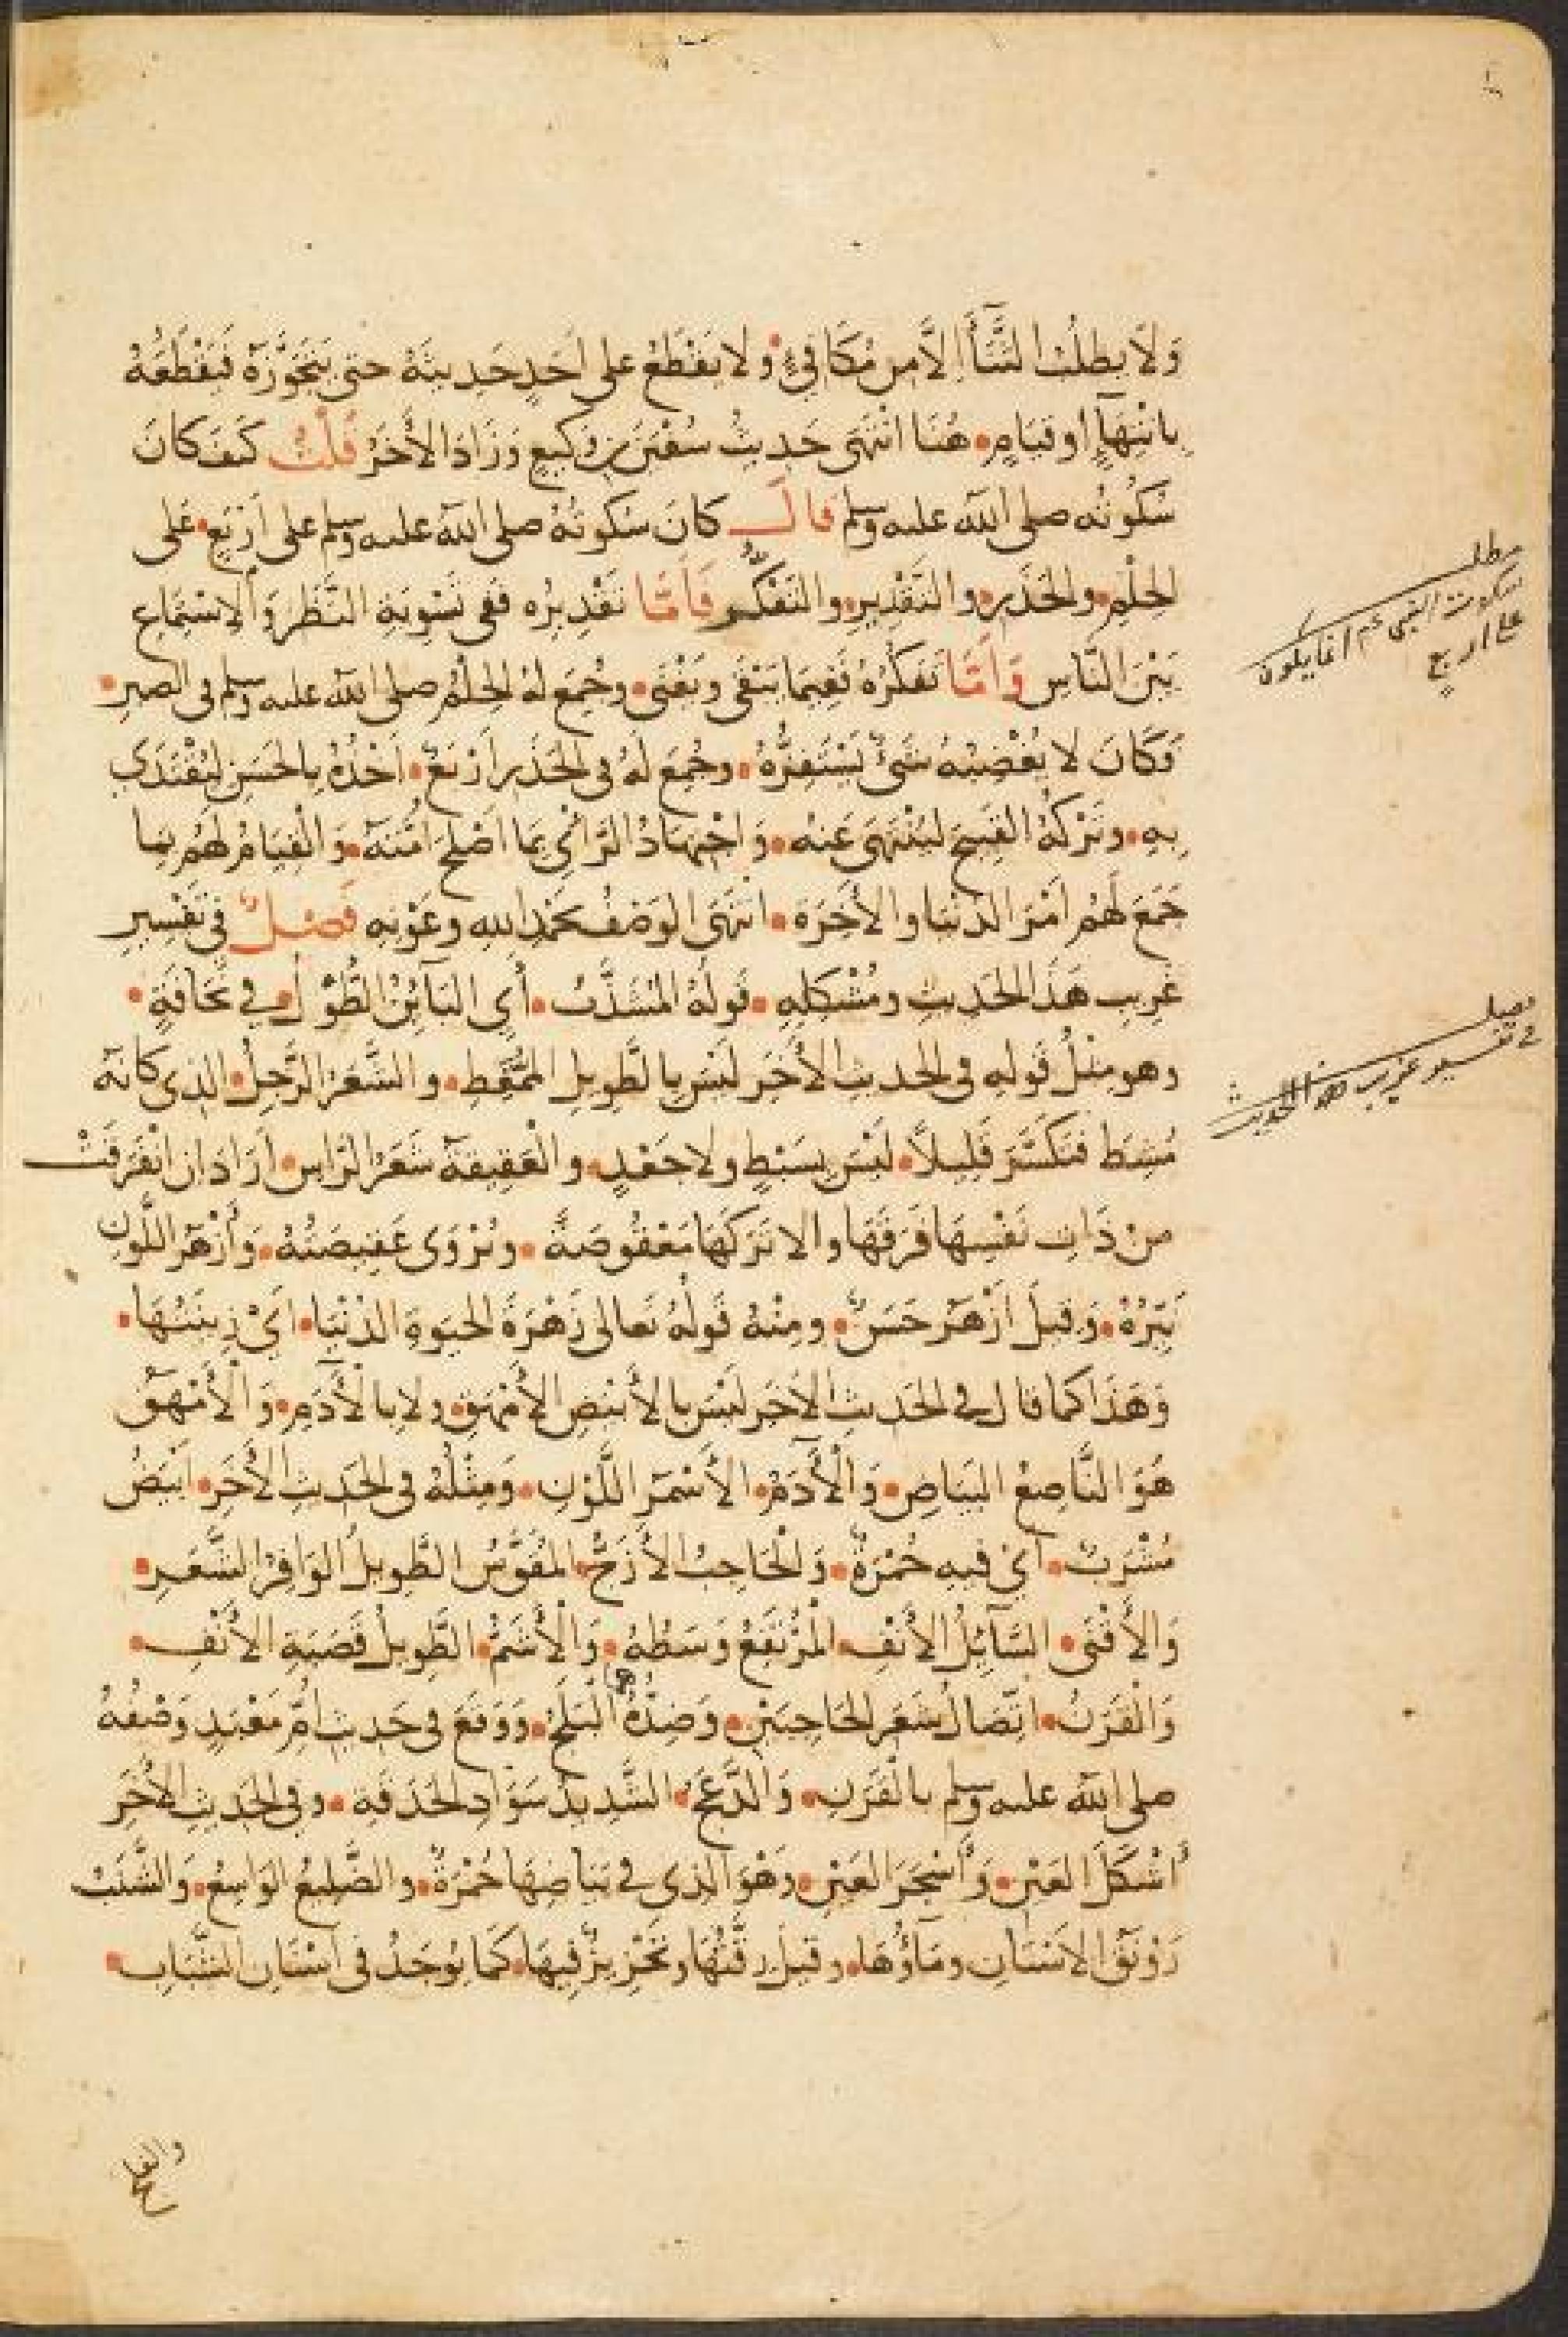 وَلَا يطلبُ الثَّنَآءَ إِلَّا مِن مُكَافِئٍ وَلا يَقْطَعُ على اَحَدٍ حَدِيثَهُ حتى يَتَجَوَّزَهُ فَيَقْطَعُهُ
بِانْتِهَآءٍ أَو قِيَامٍ هُنَا انْتَهَى حَدِيثُ سُفْيَنَ بنِ وَكيعٍ وَزَادَ الآخَرُ قُلْتُ كَيفَ كانَ
سُكُوتُه صلى الله عليه وسلم قالَ كانَ سُكوتُهُ صلى الله عليه وسلم على أَرْبَعٍ عَلى
الحِلْمِ والحَذَرِ والتَّقْدِيرِ والتَفَكُّرِ فَأَمَّا تَقْدِيرُه فَفى تَسْوِيَةِ النَّظَرِ وَالاسْتِمَاعِ
بَيْنَ النَّاسِ وَأَمَّا تَفَكُّرُهُ فَفِيمَا يَبْقَى وَيَفْنَى وَجُمِعَ لَهُ الحِلْمُ صلى الله عليه وسلم فى الصبرِ
وَكَانَ لا يُغْضِبُهُ شَىْءٌ يَسْتَفِزُّهُ وجُمِعَ لَهُ فى الحَذَرِ أَرْبَعٌ اَخْذُهُ بِالحَسَنِ لِيُقْتَدَى
بِهِ وتَرْكُهُ القَبِيحَ لِيُنْتَهَى عَنهُ وَاجْتِهَادُ الرَّاْىِ بِمَا اَصْلَحَ اُمَّتَهُ وَالْقِيَامُ لَهُم بِما
جَمَعَ لَهُمْ اَمْرَ الدُّنْيَا وَالاخِرَةِ انْتَهَى الوَصْفُ بحَمْدِ اللهِ وعَوْنِهِ فَصْلٌ فى تَفْسِيرِ
غَرِيبِ هَذَا الحَدِيثِ ومُشْكِلِهِ قَولُهُ المُشَذَّبُ أَيِ البَآئِنُ الطُّوْلِ فِي نَحَافَةٍ
وهو مِثْلُ قَولِهِ فى الحَدِيثِ الآخَرِ لَيْسَ بِالطَّوِيلِ المُمَّغِطِ والشَّعَرُ الرَّجِلُ الذى كَانَّهُ
مُشِطَ فتَكَسَّرَ قَلِيلاً لَيْسَ بِسَبْطٍ ولا جَعْدٍ والْعَقِيقَةُ شَعَرُ الرَّاسِ اَرَادَ اِنِ انْفَرَقَتْ
مِنْ ذَاتِ نَفْسِهَا فَرَقَهَا والا تَرَكَهَا مَعْقُوصَةً وَيُرْوَى عَقِيصَتُهُ وَأَزْهَرُ اللَّونِ
نَيِّرُهُ وَقِيلَ اَزْهَرُ حَسَنٌ ومِنْهُ قَولُهُ تَعالى زَهْرَةَ الحَيَوةِ الدُّنْيَا اَيْ زِينَتَهَا
وَهَذَا كما قال فى الحَدِيثِ الآخَرِ لَيْسَ بِالأَبْيَضِ الأَمْهَقِ ولا بِالآدَمِ وَالأَمْهَقُ
هُوَ النَّاصِعُ البَيَاضِ وَالآدَمُ الأَسْمَرُ اللَّوْنِ وَمِثْلُهُ فى الحَدِيثِ الآخَرِ ابْيَضُ
مُشْرَبٌ اَىْ فيهِ حُمْرَةٌ وَالْحَاجِبُ الأَزَجُّ المُقَوَّسُ الطَّوِيلُ الْوَافِرُ الشَّعَرِ
وَالأَقْنَى السَّآئِلُ الأَنْفِ المُرْتَفِعُ وَسَطُهُ وَالأَشَمُّ الطَّوِيلُ قَصَبَةِ الأَنْفِ
وَالْقَرَنُ اتِّصَالُ شَعَرِ الحَاجِبَيْنِ وَضِدُّهُ الْبَلَجُ وَوَقَعَ فى حَدِيثِ اُمِّ مَعْبَدٍ وَصْفُهُ
صلى الله عليه وسلم بالْقَرَنِ وَالدَّعِجُ الشَّدِيدُ سَوَادِ الحَدَقَةِ وفى الحَدِيثِ الآخَرِ
أَشْكَلُ العَيْنِ وَأَسْجَرُ العَيْنِ وَهْوَ الذى فى بَيَاضِهَا حُمْرَةٌ والضَّلِيعُ الوَاسِعُ وَالشَّنَبُ
رَوْنَقُ الاَسْنَانِ ومَآؤُهَا وقيلَ رِقَّتُهَا وتَحْزِيزٌ فِيهَا كَمَا يُوجَدُ فى اَسْنَانِ الشَّبَابِ
مطلب
سكوت النبى عم انما يكون
على اربع
فصل
فى تفسير غريب هذا الحديث
والفلج